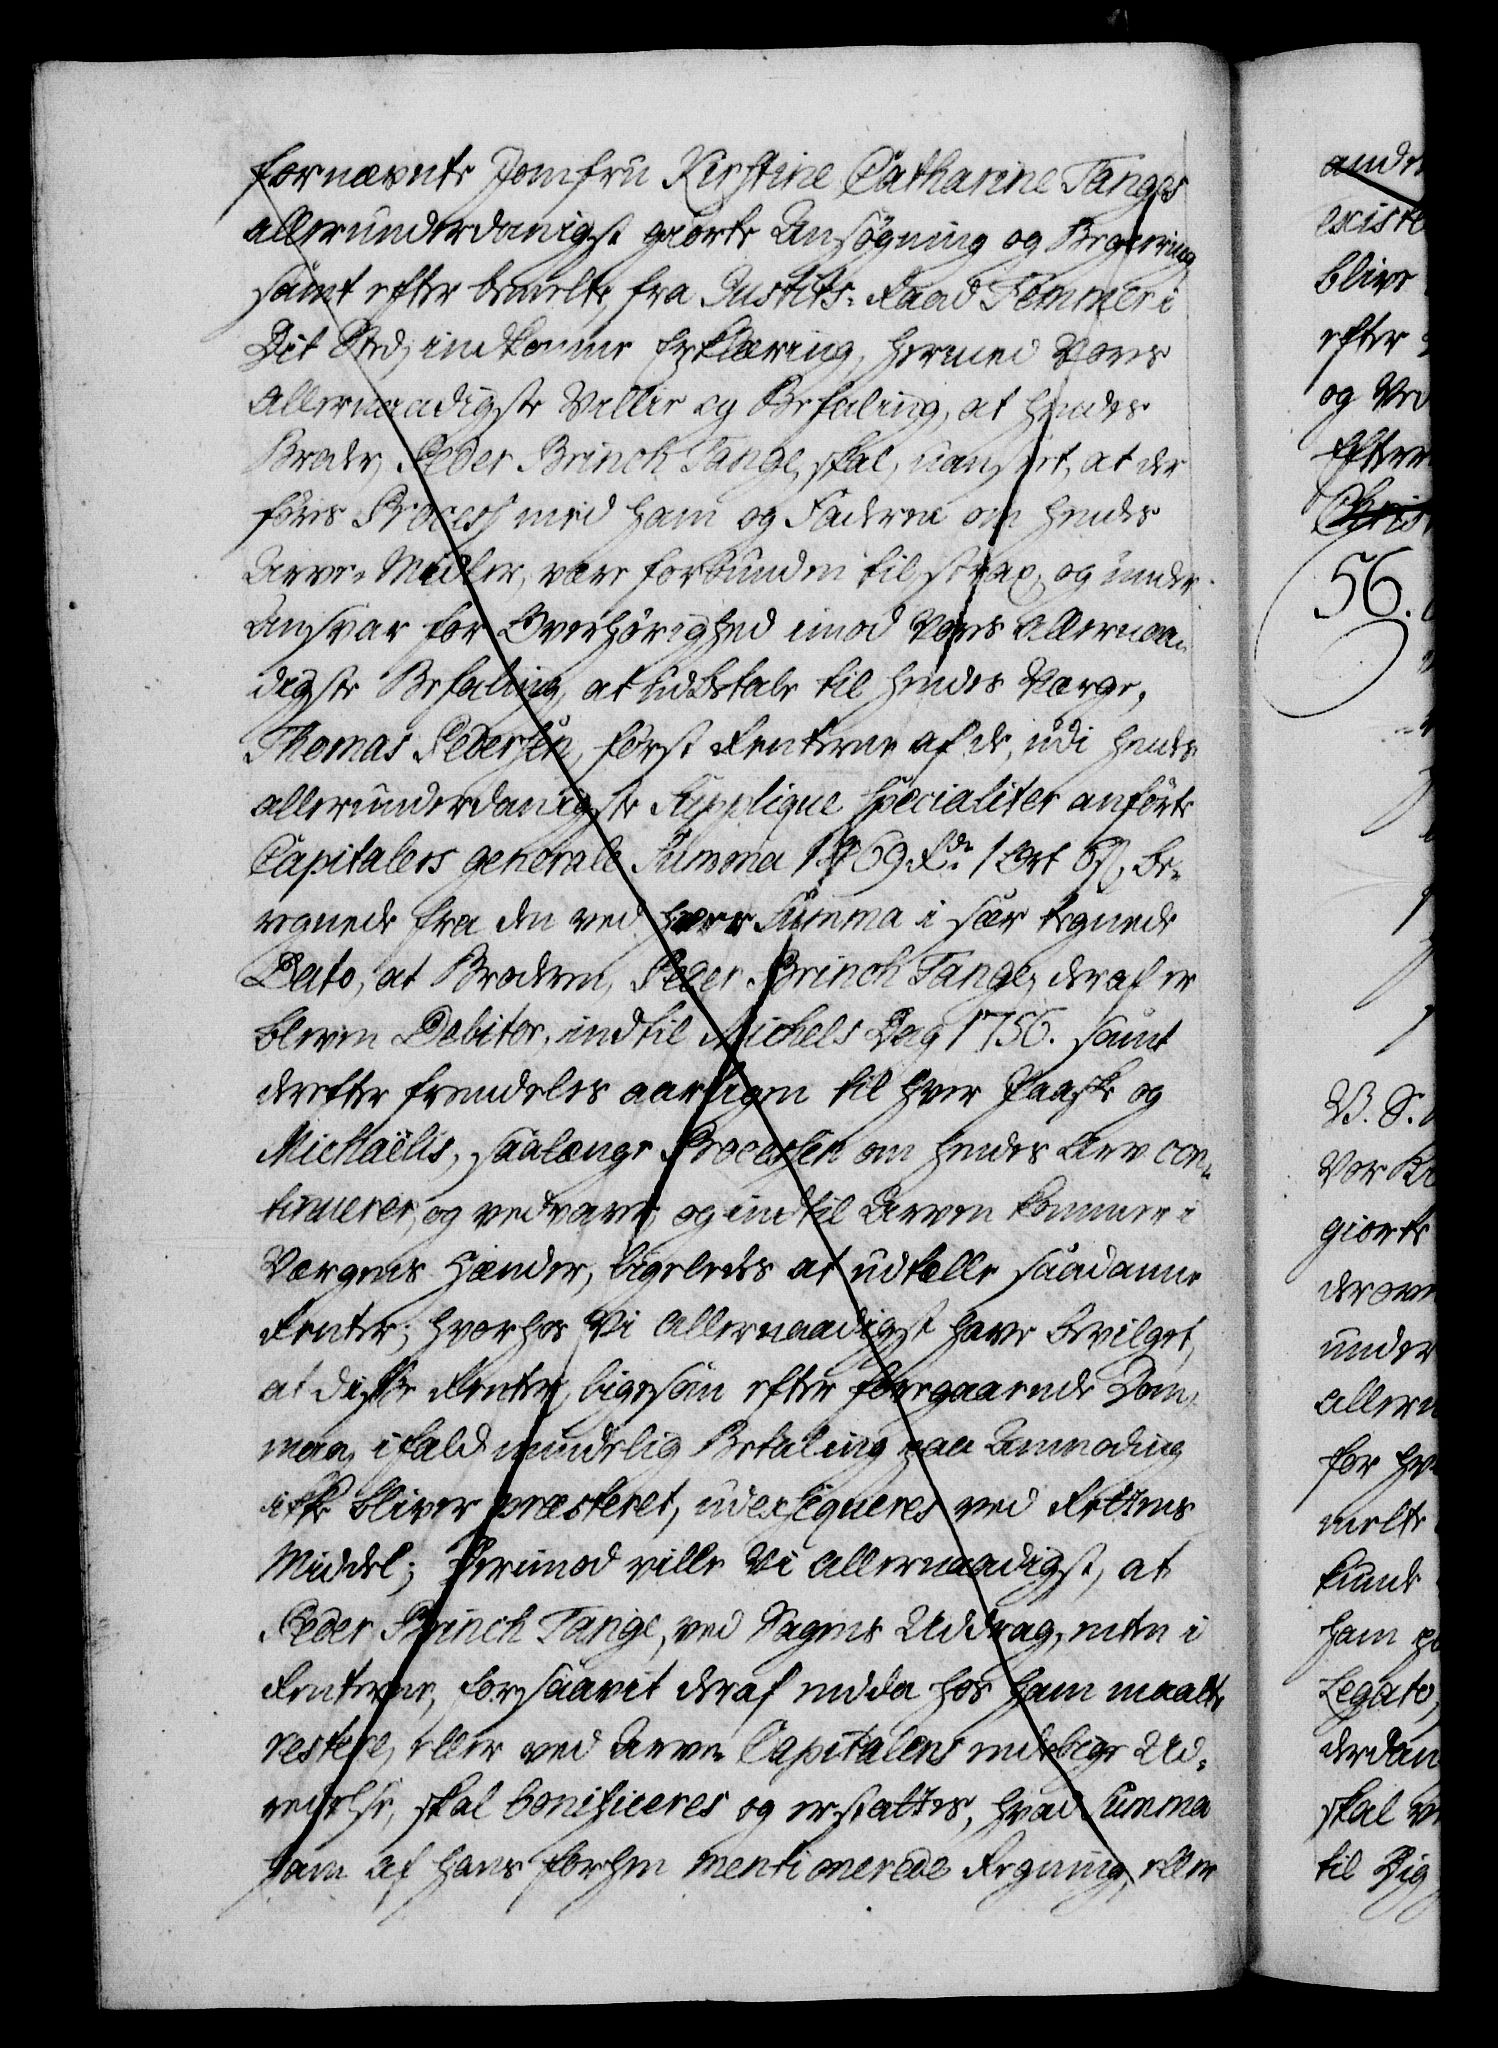 fornævnte Jomfru Kirstine Catharine Tanges
allerunderdanigst giorte Ansøgning og Begiering
samt efter bemelte, fra Justits-Raad Temmer i
Dit Sted, indkomne Erklæring, hermed Vores
allernaadigste Villie og Befaling, at hendes
Broder, Peder Brinch Tange, skal, uanseet, at der
føres Process med ham og Faderen om hendes
Arve-Midler, være forbunden til, strax, og under
Ansvar for Overhørighed imod Vores allernaa-
digste Befaling, at udbetale til hendes Værge,
Thomas Pedersen, først Renterne af de, udi hendes
allerunderdanigste Supplique specialiter anførte
Capitalers generale Summa 1769 Rdr 1 Ort 6 s, be-
regnede fra den ved hver Summa i sær tegnede
Dato, at Broderen, Peder Brinch Tange, deraf er
bleven Debitor, indtil Michels Dag 1756. samt
derefter fremdeles aarligen til hver Paaske og
Michaëlis, saalænge Processen om hendes Arv con-
tinuerer, og vedvarer, og indtil Arven kommer i
Værgens Hænder, ligeledes at udtælle saadanne
Renter; hvorhos Vi allernaadigst have bevilget,
at disse Renter, ligesom efter foregaaende Dom,
maa, ifald mindelig Betaling paa Anmoding
ikke bliver præsteret, udexeqveres ved Rettens
Middel; Derimod ville Vi allernaadigst, at
Peder Brinch Tange, ved Sagens Uddrag, enten i
Renterne, forsaavit deraf endda hos ham maatte
restere, eller ved Arve-Capitalens endelige Ud-
redelse, skal bonificeres og erstattes, hvad Summa
ham af hans forhen mentionerede Regning, eller
56.